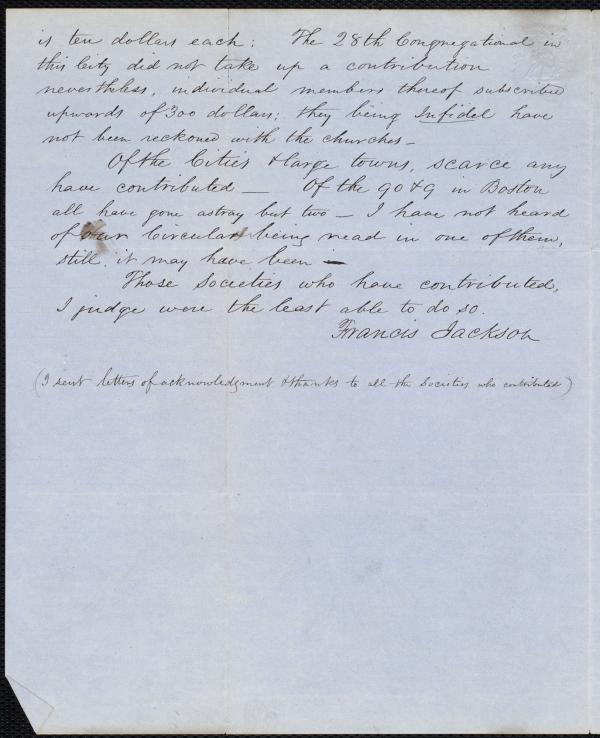 is ten dollars each; The 28th Congregational in
this City did not take up a contribution
nevertheless, individual members thereof subscribed
upwards of 300 dollars; they being Infidel have
not been reckoned with the churches –
Of the Cities & large towns, scarce any
have contributed — Of the 90 & 9 in Boston
all have gone astray but two – I have not heard
of our Circular being read in one of them,
still, it may have been –
Those Societies who have contributed,
I judge were the least able to do so.
Francis Jackson
(I sent letters of acknowledgment & thanks to all the Societies who contributed)